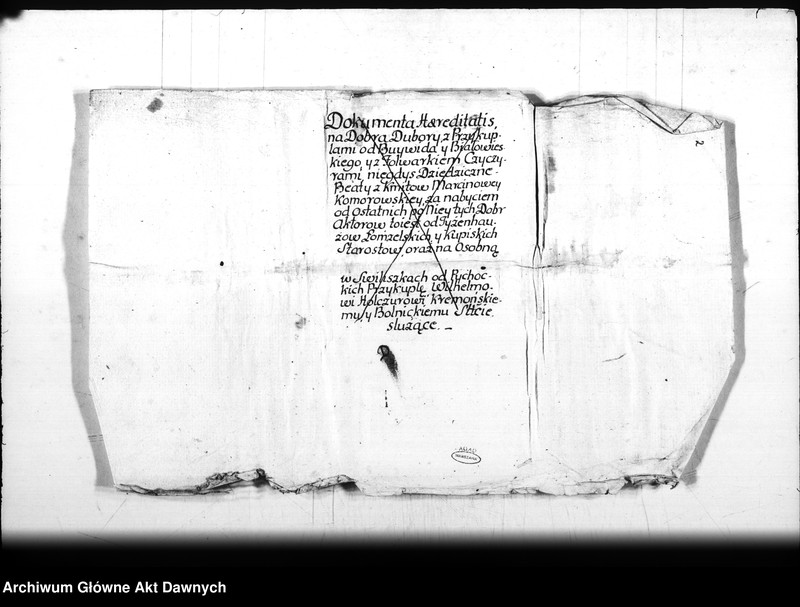 Dokumenta Hæreditatis
na Dobra Dubory z Przykup-
lami od Buywida y Białowies-
kiego y z Folwarkiem Czyczy-
rami, niegdys Dziedziczne
Beaty z Kmitow Marcinowey
Komorowskiey, za nabyciem
od Ostatnich po Niey tych Dobr
Aktorow toiest od Tyzenhau-
zow Pomzelskich y Kupiskich
Starostow oraz na Osobną
w Swiliszkach od Rychoc-
kich Przykuplę Wilhelmo-
wi Holczurowi Kremonskie-
mu y Bolnickiemu Stście
służące. _
2
AGAD
WARSZAWA
Archiwum Główne Akt Dawnych